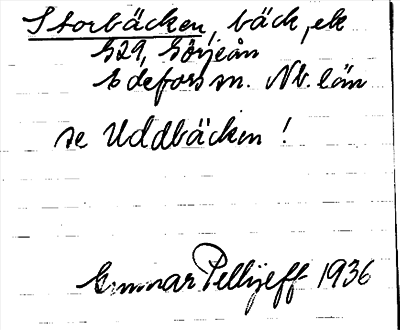 Storbäcken, bäck, ek
S29, Görjeån
Edefors sn. Nb. län
se Uddbäcken!
Gunnar Pellijeff 1936